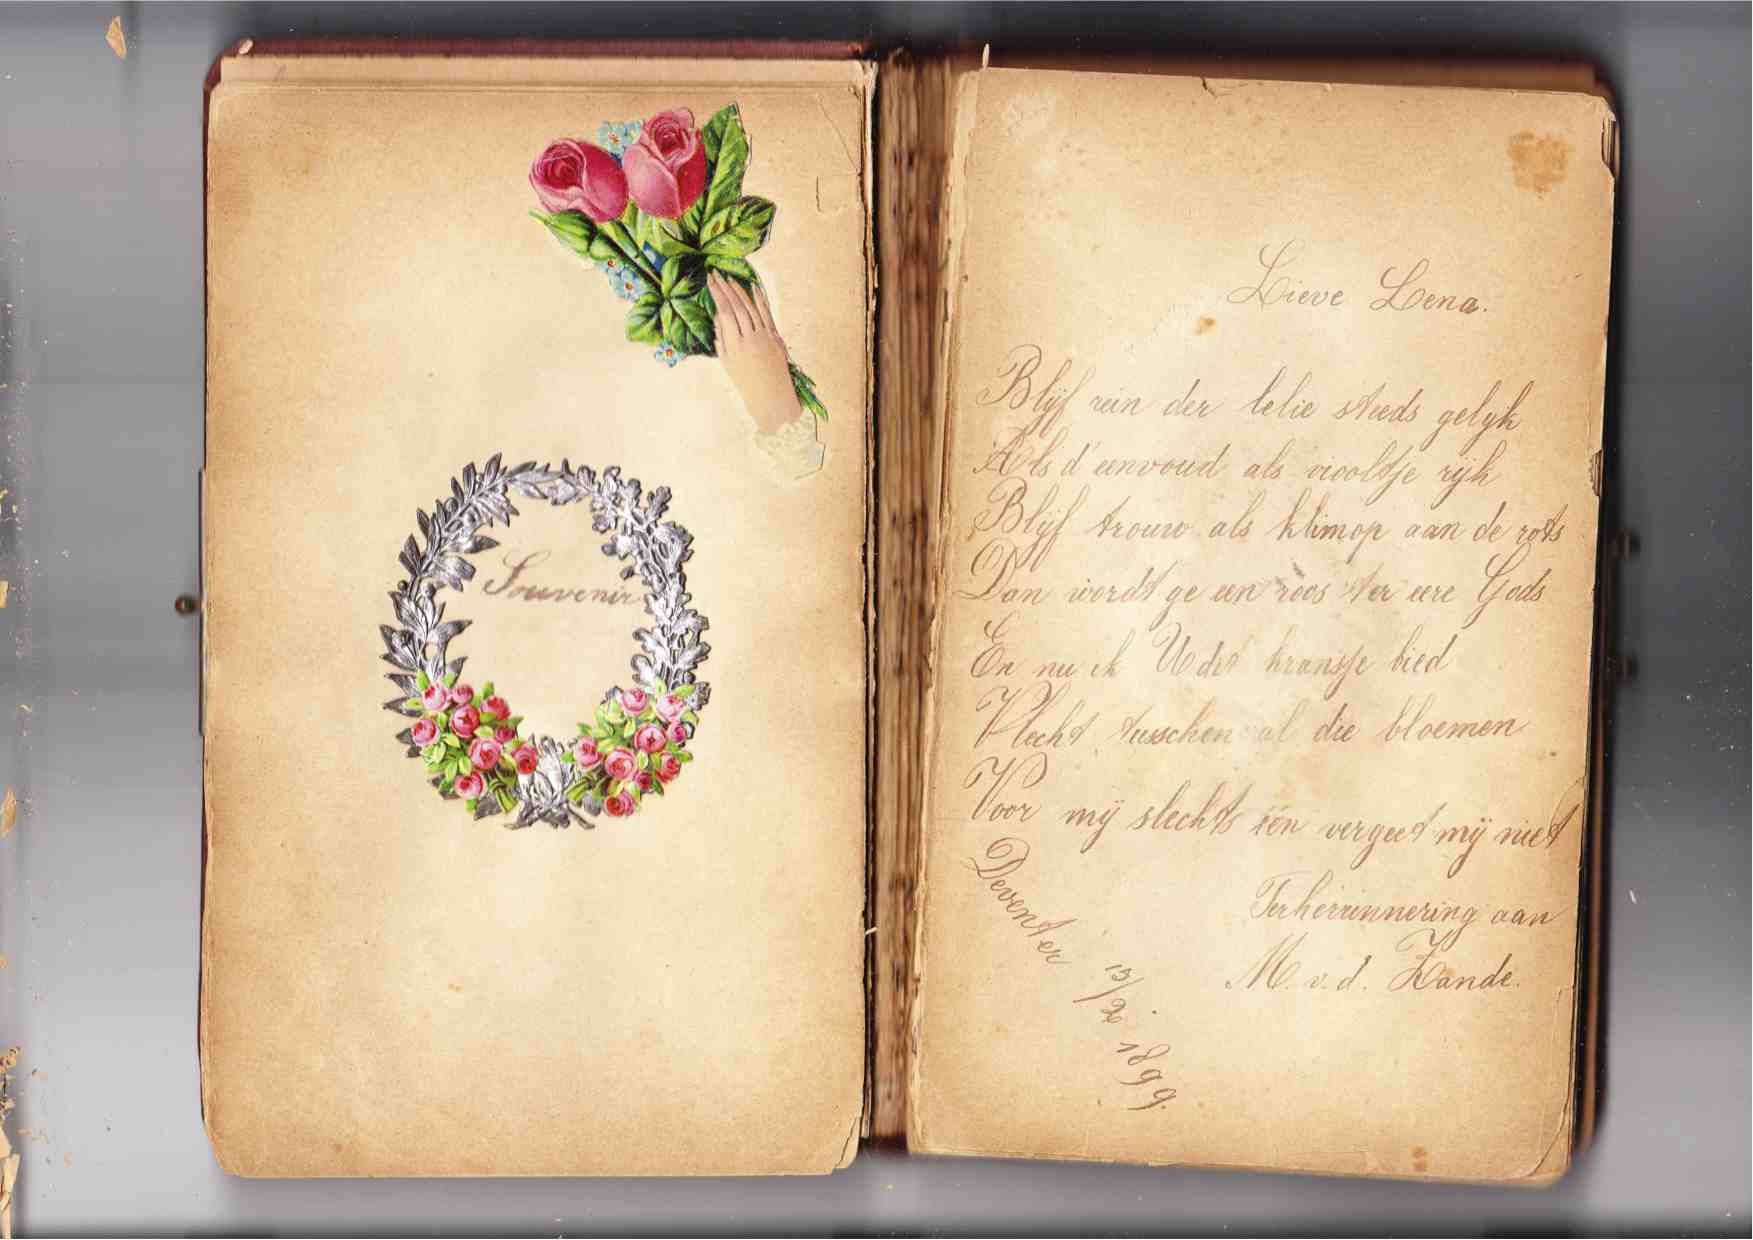 Souvenir
Lieve Lena.
Blijf rein der lelie steeds gelijk
Als d'eenvoud als viooltje rijk
Blijf trouw als klimop aan de rots
Dan wordt ge een roos ter eere Gods
En nu ik U dit kransje bied
Vlecht tusschen al die bloemen
Voor mij slechts één vergeet mij niet
Terherrinnering aan
M. v. d. Zande.
Deventer 15/2. 1899.